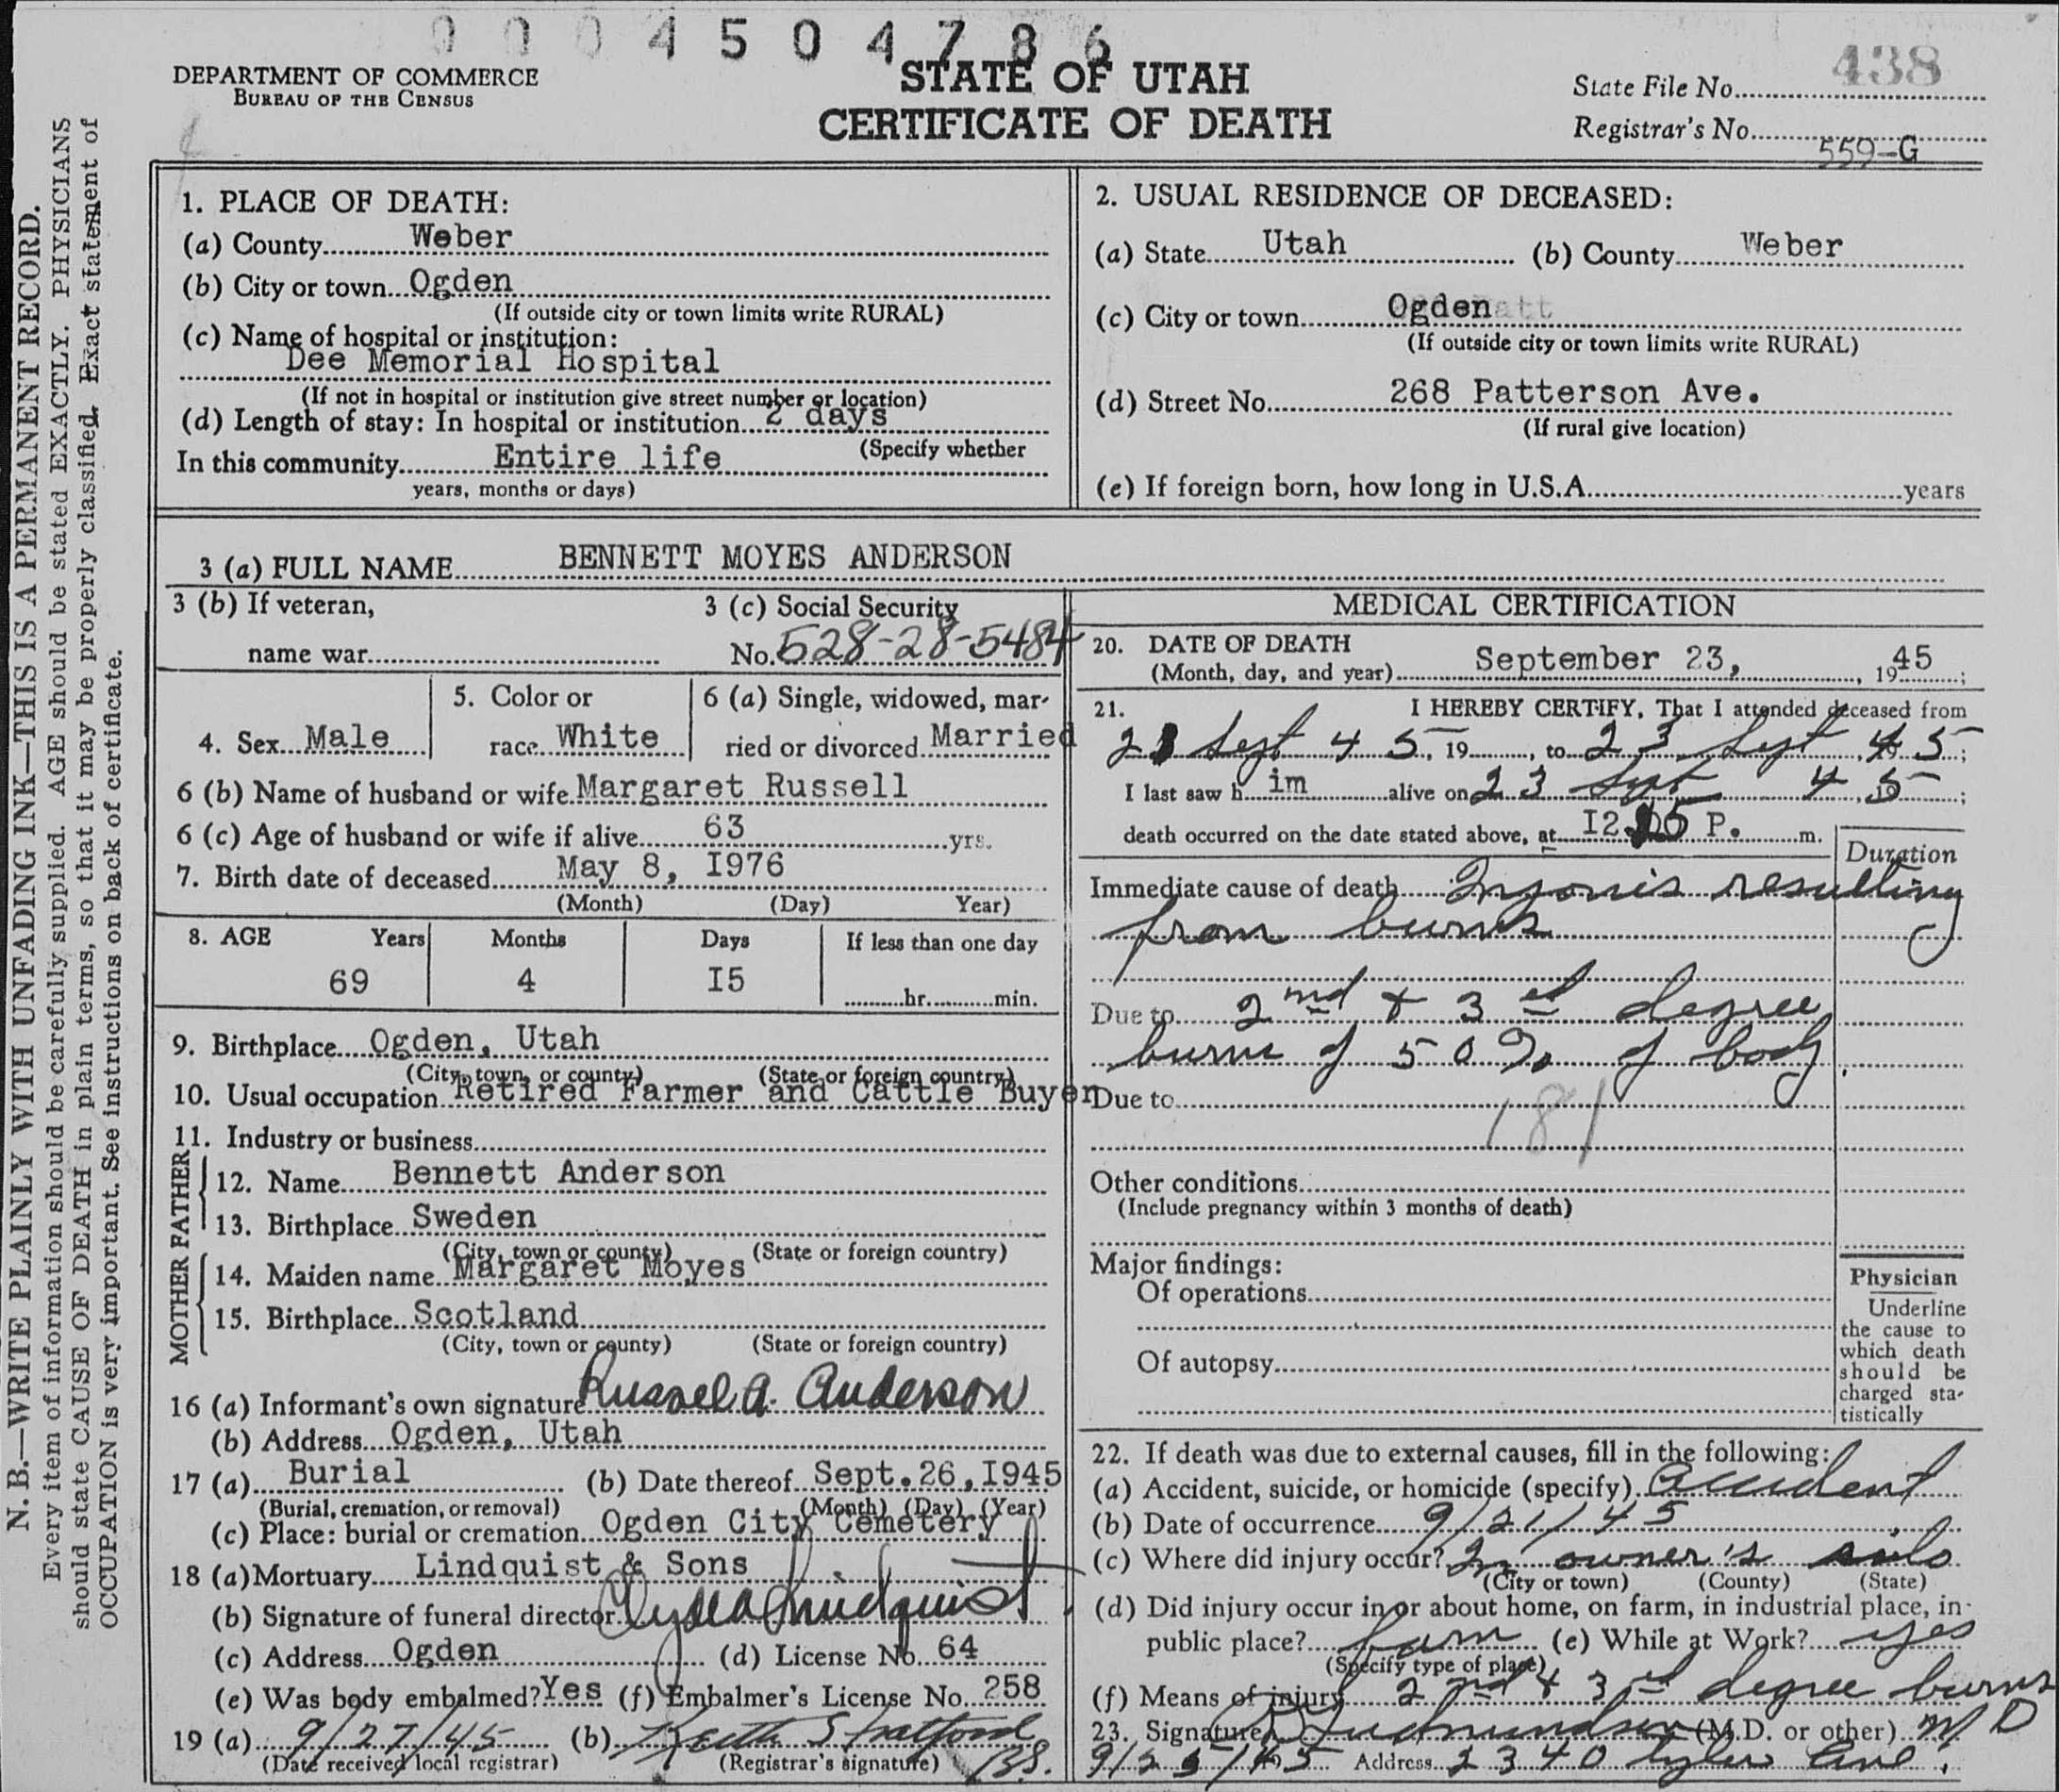 0004504786
DEPARTMENT OF COMMERCE
BUREAU OF THE CENSUS
STATE OF UTAH
CERTIFICATE OF DEATH
State File No. 438
Registrar's No. 559-G
N. B.—WRITE PLAINLY WITH UNFADING INK—THIS IS A PERMANENT RECORD.
Every item of information should be carefully supplied. AGE should be stated EXACTLY. PHYSICIANS
should state CAUSE OF DEATH in plain terms, so that it may be properly classified. Exact statement of
OCCUPATION is very important. See instructions on back of certificate.
1. PLACE OF DEATH:
(a) County Weber
(b) City or town Ogden
(If outside city or town limits write RURAL)
(c) Name of hospital or institution:
Dee Memorial Hospital
(If not in hospital or institution give street number or location)
(d) Length of stay: In hospital or institution 2 days
(Specify whether
In this community Entire life
years, months or days)
2. USUAL RESIDENCE OF DECEASED:
(a) State Utah (b) County Weber
(c) City or town Ogden
(If outside city or town limits write RURAL)
(d) Street No. 268 Patterson Ave.
(If rural give location)
(e) If foreign born, how long in U.S.A. years
3 (a) FULL NAME BENNETT MOYES ANDERSON
3 (b) If veteran,
name war
3 (c) Social Security
No. 528-28-5484
4. Sex Male
5. Color or
race White
6 (a) Single, widowed, mar-
ried or divorced Married
6 (b) Name of husband or wife Margaret Russell
6 (c) Age of husband or wife if alive 63 yrs.
7. Birth date of deceased May 8, I976
(Month) (Day) Year)
8. AGE Years Months Days If less than one day
69 4 I5 hr. min.
9. Birthplace Ogden, Utah
(City, town, or county) (State or foreign country)
10. Usual occupation Retired Farmer and Cattle Buyer
11. Industry or business
FATHER
12. Name Bennett Anderson
13. Birthplace Sweden
(City, town or county) (State or foreign country)
MOTHER
14. Maiden name Margaret Moyes
15. Birthplace Scotland
(City, town or county) (State or foreign country)
16 (a) Informant's own signature Russel A. Anderson
(b) Address Ogden, Utah
17 (a) Burial (b) Date thereof Sept. 26, I945
(Burial, cremation, or removal) (Month) (Day) (Year)
(c) Place: burial or cremation Ogden City Cemetery
18 (a) Mortuary Lindquist & Sons
(b) Signature of funeral director Clyde Lindquist
(c) Address Ogden (d) License No. 64
(e) Was body embalmed? Yes (f) Embalmer's License No. 258
19 (a) 9/27/45 (b) Keith Stratford
(Date received local registrar) (Registrar's signature) BS.
MEDICAL CERTIFICATION
20. DATE OF DEATH
(Month, day, and year) September 23, , 1945;
21. I HEREBY CERTIFY, That I attended deceased from
21 Sept 45, 19 , to 23 Sept 45;
I last saw h im alive on 23 Sept 45;
death occurred on the date stated above, at I2 05 P. m.
Duration
Immediate cause of death resulting
from burns
Due to 2nd & 3rd degree
burns of 50% of body
Due to
181
Other conditions
(Include pregnancy within 3 months of death)
Major findings:
Of operations
Of autopsy
Physician
Underline
the cause to
which death
should be
charged sta-
tistically
22. If death was due to external causes, fill in the following:
(a) Accident, suicide, or homicide (specify) Accident
(b) Date of occurrence 9/21/45
(c) Where did injury occur? In owner's silo
(City or town) (County) (State)
(d) Did injury occur in or about home, on farm, in industrial place, in
public place? farm (e) While at Work? yes
(Specify type of place)
(f) Means of injury 2nd & 3rd degree burns
23. Signature (M.D. or other) M D
9/25/45 Address 2340 Tyler Ave.